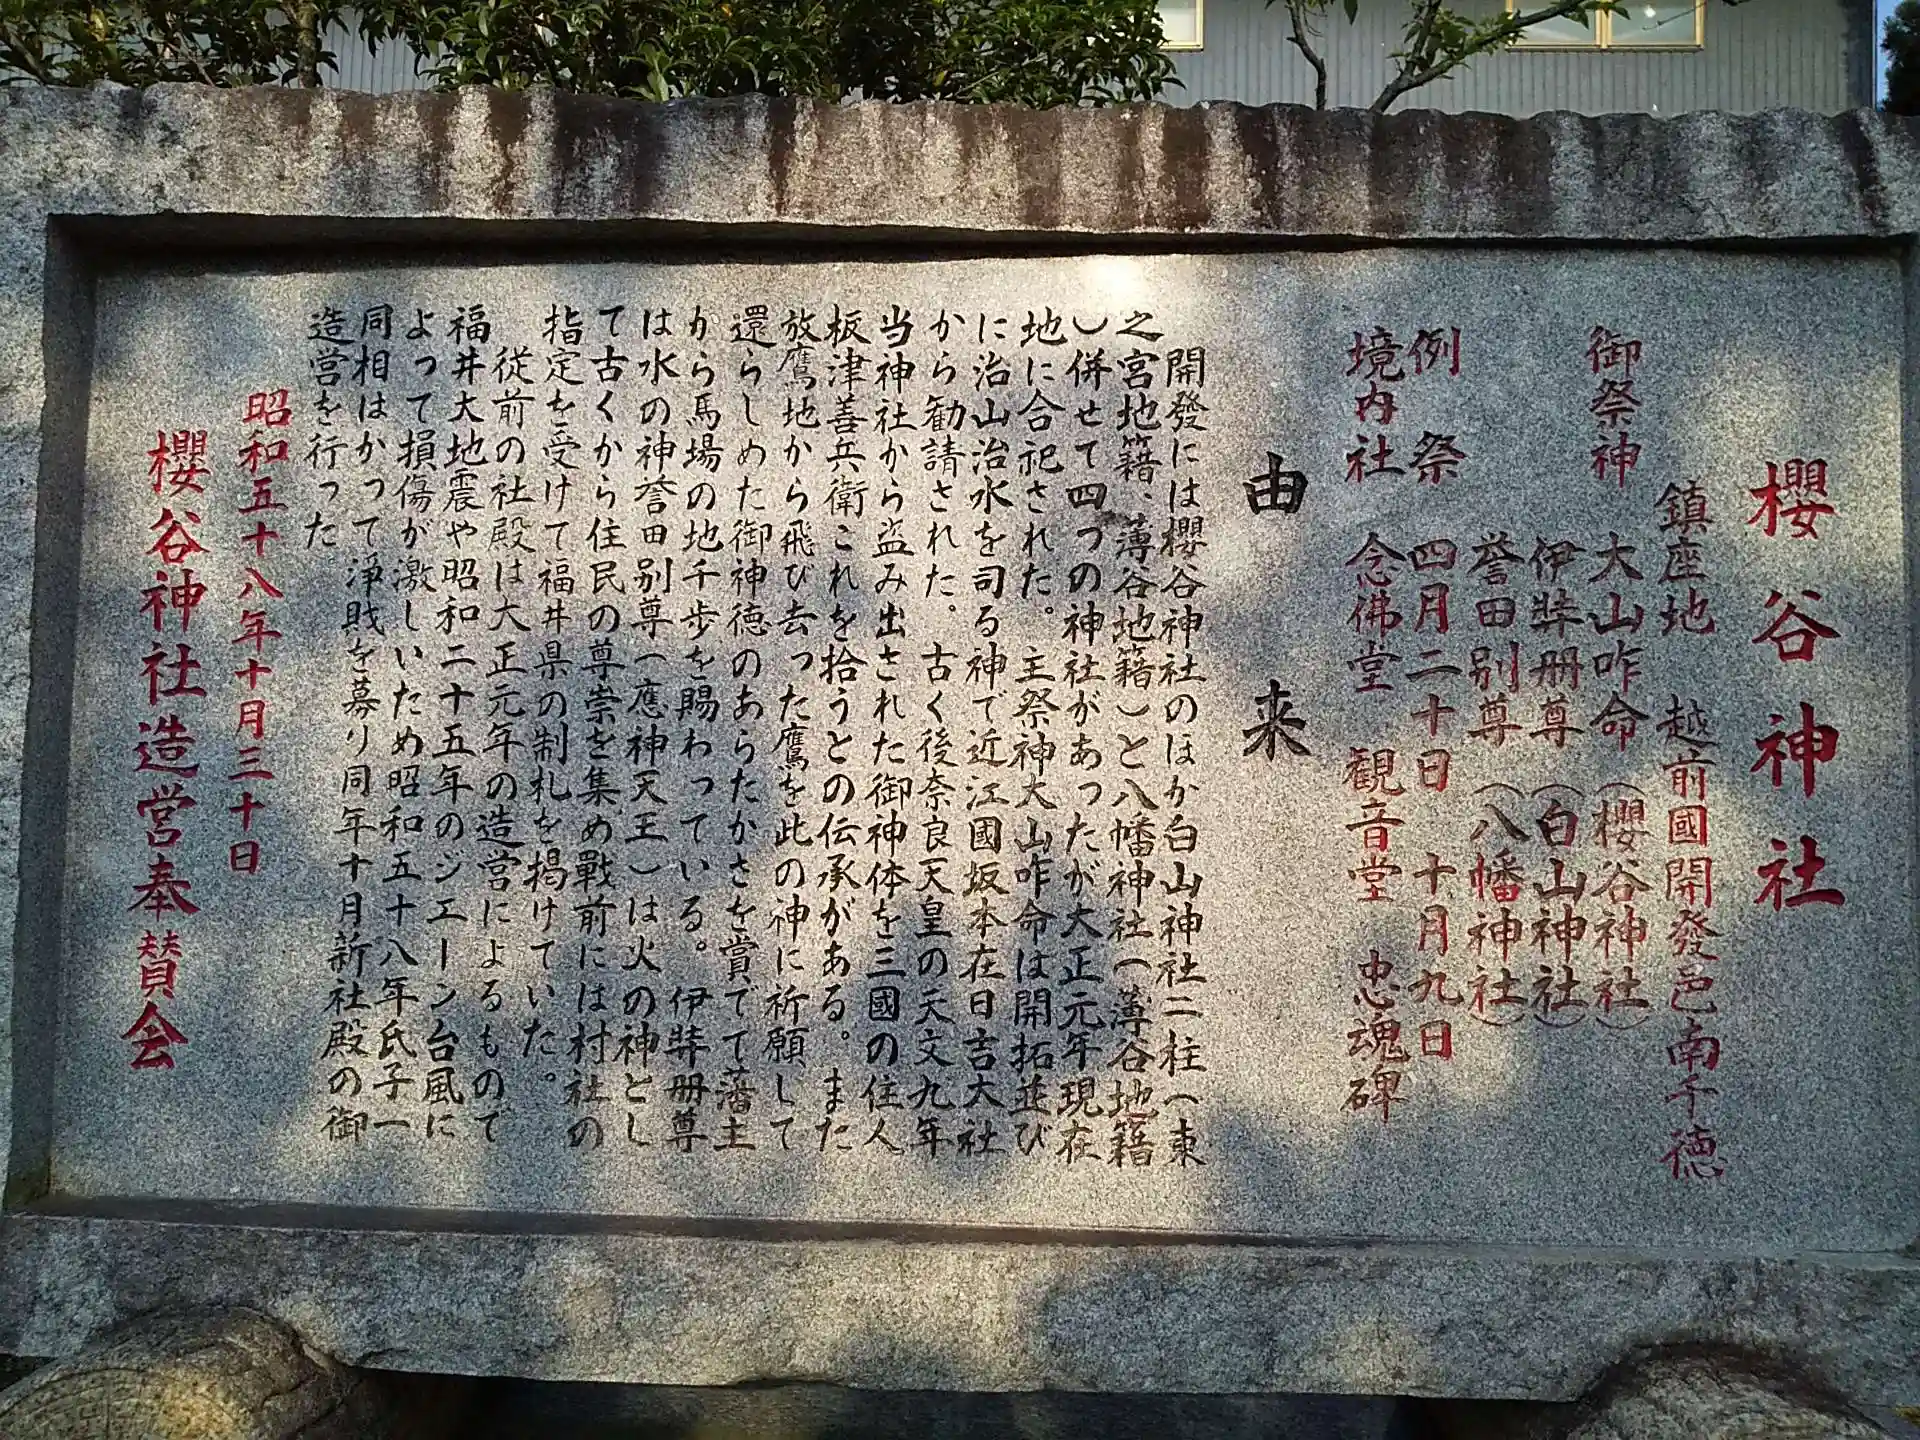 櫻谷神社
鎮座地　越前國開發邑南千徳
御祭神　大山咋命（櫻谷神社）
伊弉冊尊（白山神社）
誉田別尊（八幡神社）
例祭　四月二十日　十月九日
境内社　念佛堂　観音堂　忠魂碑
由来
開發には櫻谷神社のほか白山神社二柱（東
之宮地籍、薄谷地籍）と八幡神社（薄谷地籍
）併せて四つの神社があったが大正元年現在
地に合祀された。主祭神大山咋命は開拓並び
に治山治水を司る神で近江國坂本在日吉大社
から勧請された。古く後奈良天皇の天文九年
当神社から盗み出された御神体を三國の住人
板津善兵衛これを拾うとの伝承がある。また
放鷹地から飛び去った鷹を此の神に祈願して
還らしめた御神徳のあらたかさを賞でて藩主
から馬場の地千歩を賜わっている。伊弉冊尊
は水の神誉田別尊（應神天王）は火の神とし
て古くから住民の尊崇を集め戰前には村社の
指定を受けて福井県の制札を掲けていた。
従前の社殿は大正元年の造営によるもので
福井大地震や昭和二十五年のジエーン台風に
よって損傷が激しいため昭和五十八年氏子一
同相はかって浄財を募り同年十月新社殿の御
造営を行った。
昭和五十八年十月三十日
櫻谷神社造営奉賛会